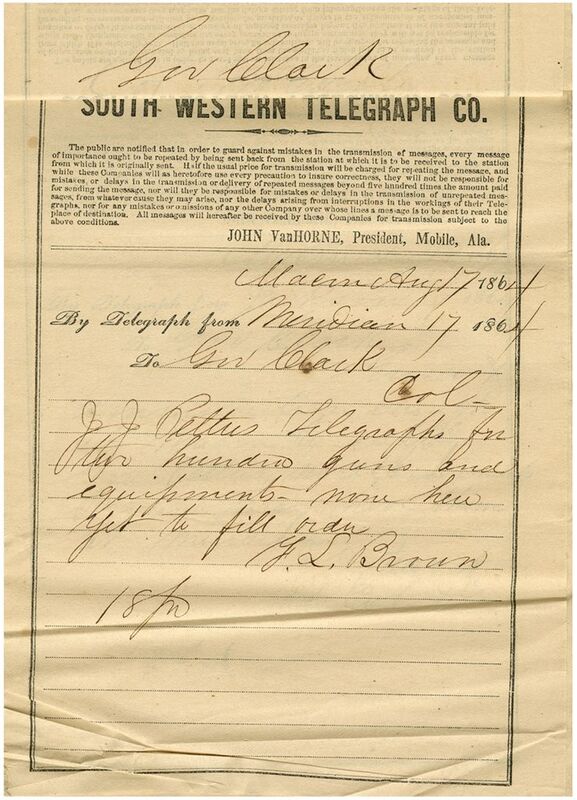 Gov Clark
SOUTH WESTERN TELEGRAPH CO.
The public are notified that in order to guard against mistakes in the transmission of messages, every message
of importance ought to be repeated by being sent back from the station at which it is to be received to the station
from which it is originally sent. Half the usual price for transmission will be charged for repeating the message, and
while these Companies will as heretofore use every precaution to insure correctness, they will not be responsible for
mistakes, or delays in the transmission or delivery of repeated messages beyond five hundred times the amount paid
for sending the message, nor will they be responsible for mistakes or delays in the transmission of unrepeated mes-
sages, from whatever cause they may arise, nor the delays arising from interruptions in the workings of their Tele-
graphs, nor for any mistakes or omissions of any other Company over whose lines a message is to be sent to reach the
place of destination. All messages will hereafter be received by these Companies for transmission subject to the
above conditions.
JOHN VanHORNE, President, Mobile, Ala.
Macon Aug 17 1864
By Telegraph from Meridian 17 1864
To Gov Clark
Col-
J J Pettus Telegraphs for
two hundred guns and
equipments- none here
yet to fill order
L. Brown